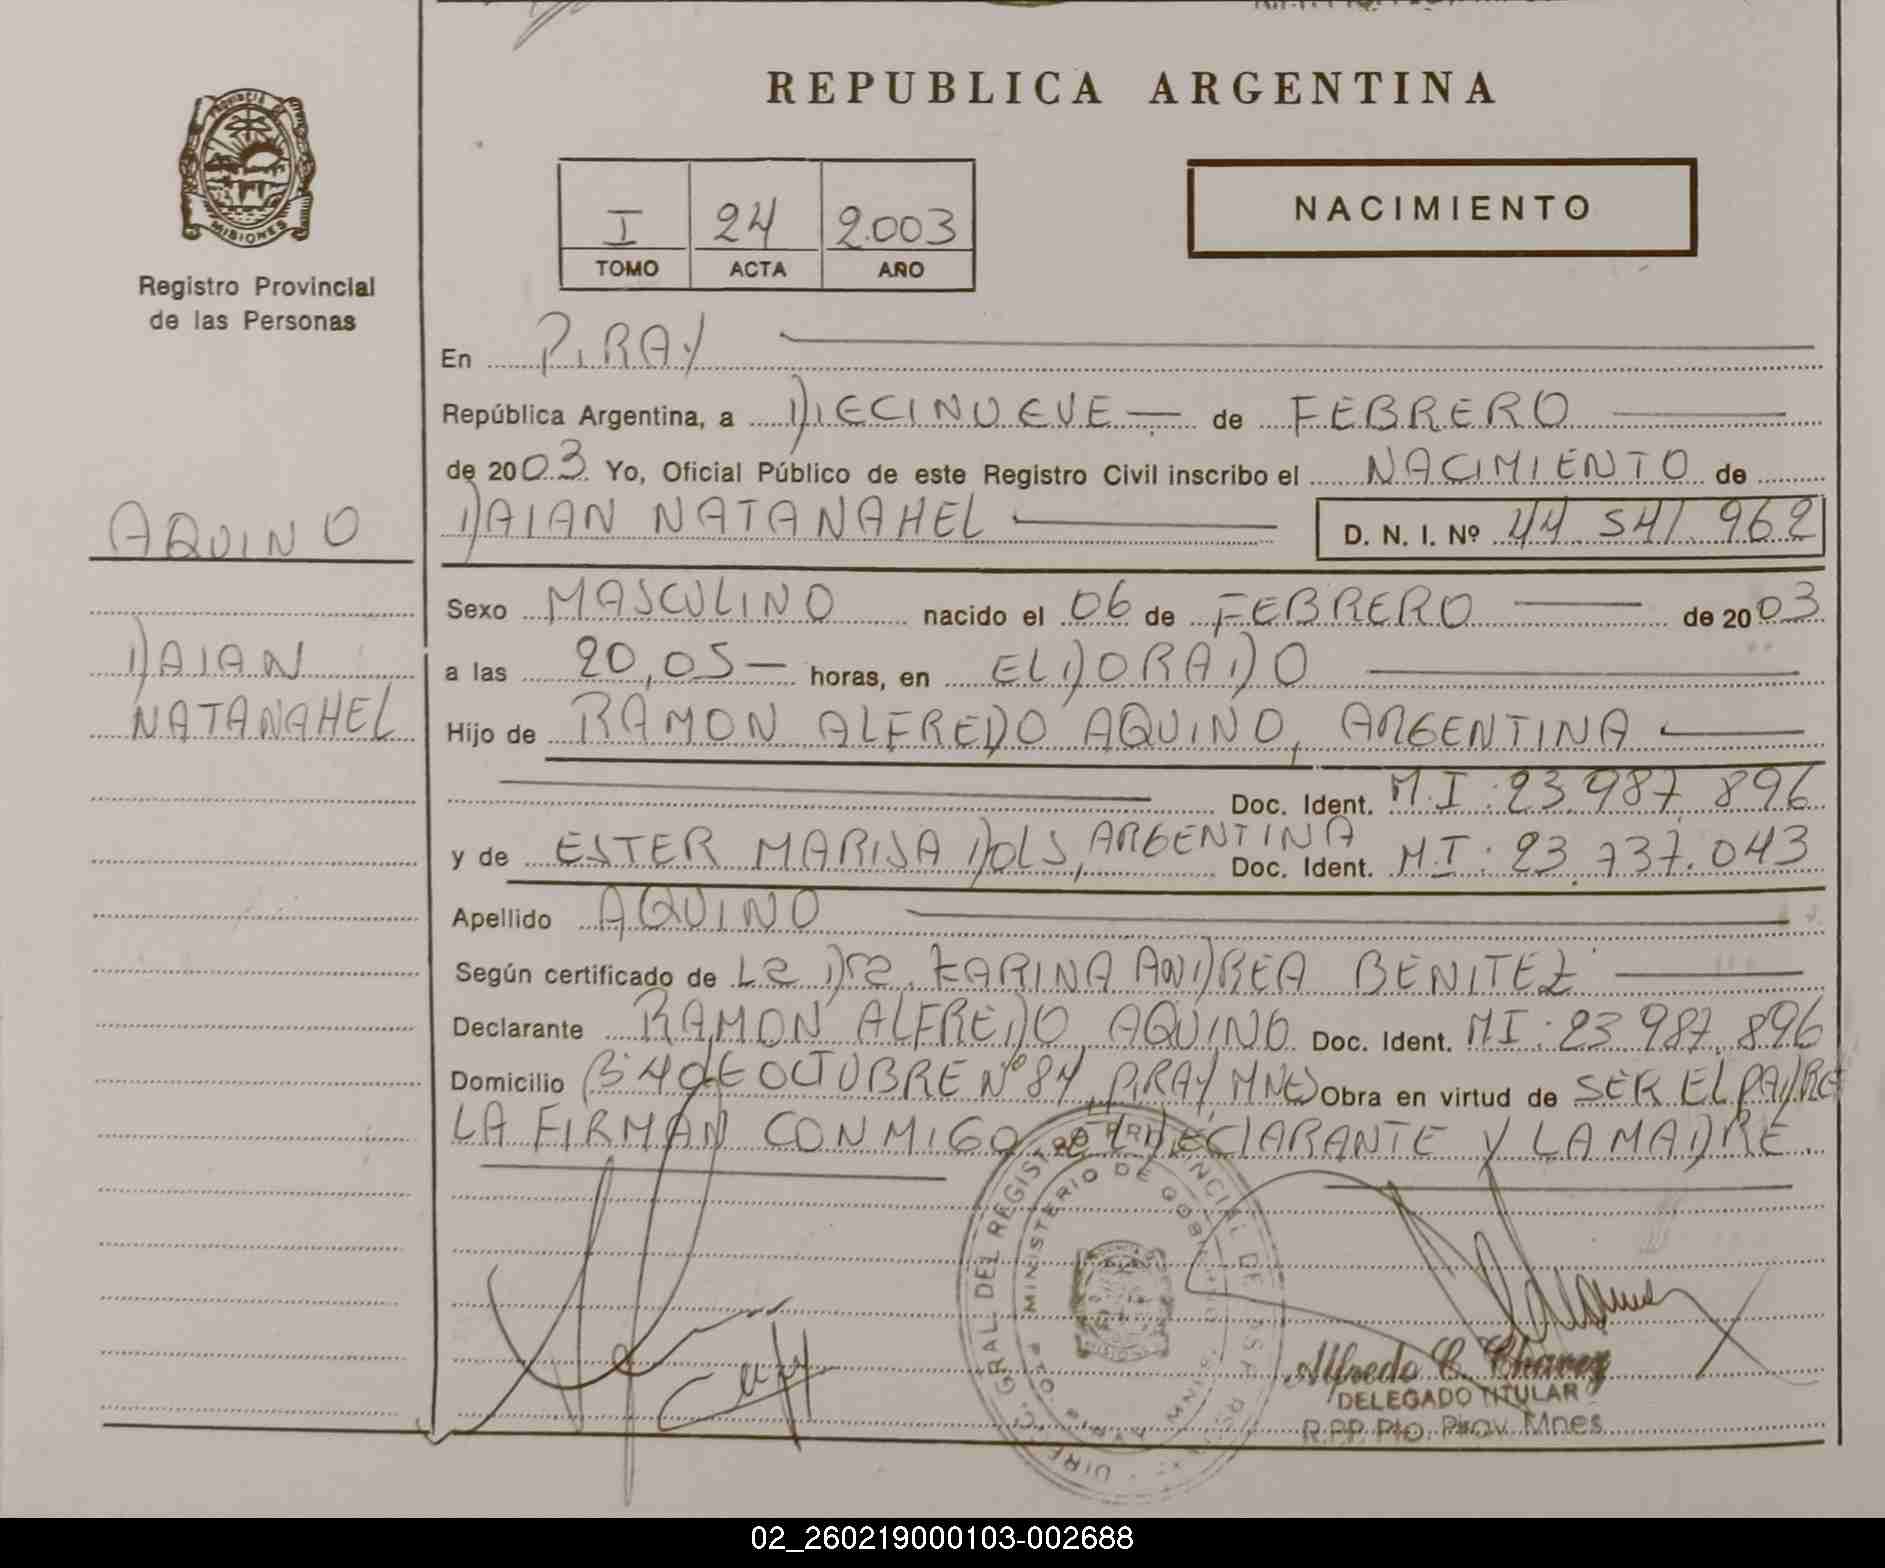 REPUBLICA ARGENTINA
MISIONES
Registro Provincial
de las Personas
I 24 2.003
TOMO ACTA AÑO
NACIMIENTO
En PIRAY
República Argentina, a DIECINUEVE de FEBRERO
de 2003 Yo, Oficial Público de este Registro Civil inscribo el NACIMIENTO de
AQUINO
DAIAN NATANAHEL D. N. I. Nº 44.541.962
Sexo MASCULINO nacido el 06 de FEBRERO de 2003
DAIAN
NATANAHEL
a las 20,05 horas, en ELDORADO
Hijo de RAMON ALFREDO AQUINO, ARGENTINA
Doc. Ident. M.I: 23.987.896
y de ESTER MARISA DOLS, ARGENTINA Doc. Ident. M.I: 23.737.043
Apellido AQUINO
Según certificado de La Dra. KARINA ANDREA BENITEZ
Declarante RAMON ALFREDO AQUINO Doc. Ident. MI: 23.987.896
Domicilio Bº 4 de OCTUBRE Nº 84, PIRAY, MNES Obra en virtud de SER EL PADRE
LA FIRMAN CONMIGO el DECLARANTE Y LA MADRE.
MINISTERIO DE
Alfredo C. Chavez
DELEGADO TITULAR
R.P.P. Pto. Piray Mnes
02_260219000103-002688